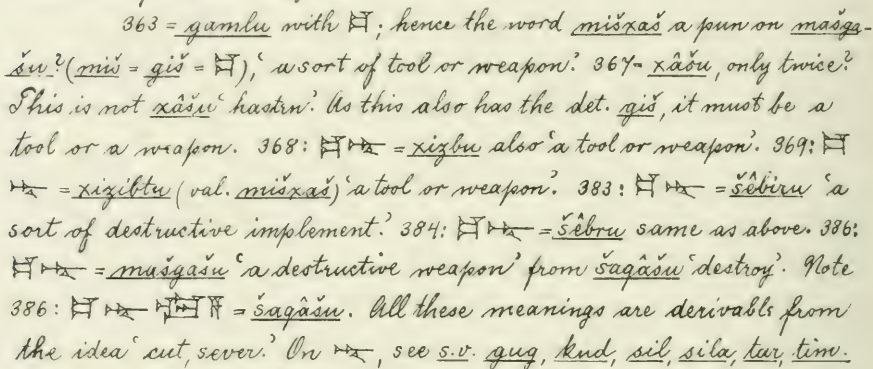 363 = gamlu with 𒄑; hence the word mišxaš a pun on mašga-
šu? (miš = giš = 𒄑), 'a sort of tool or weapon'. 367 = xâšu, only twice?
This is not xâšu 'hasten'. As this also has the det. giš, it must be a
tool or a weapon. 368: 𒄑 𒋻 = xizbu also 'a tool or weapon'. 369: 𒄑
𒋻 = xizibtu (val. mišxaš) 'a tool or weapon'. 383: 𒄑 𒋻 = šêbiru 'a
sort of destructive implement.' 384: 𒄑 𒋻 = šêbru same as above. 386:
𒄑 𒋻 = mašgašu 'a destructive weapon' from šagâšu 'destroy'. Note
386: 𒄑 𒋻 = šagâšu. All these meanings are derivable from
the idea 'cut, sever.' On 𒋻, see s.v. gug, kud, sil, sila, tar, tim.